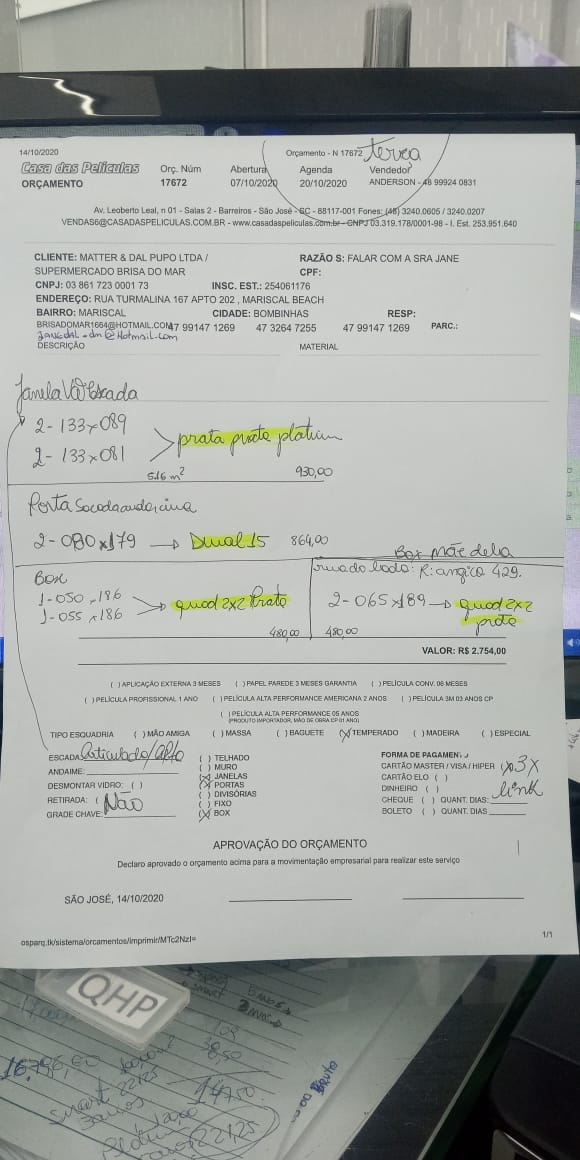 14/10/2020 Orçamento - N 17672 terça
Casa das Películas Orç. Núm Abertura Agenda Vendedor
ORÇAMENTO 17672 07/10/2020 20/10/2020 ANDERSON - 48 99924 0831
Av. Leoberto Leal, n 01 - Salas 2 - Barreiros - São José - SC - 88117-001 Fones: (48) 3240.0605 / 3240.0207
VENDAS6@CASADASPELICULAS.COM.BR - www.casadaspeliculas.com.br - CNPJ 03.319.178/0001-98 - I. Est. 253.951.640
CLIENTE: MATTER & DAL PUPO LTDA / RAZÃO S: FALAR COM A SRA JANE
SUPERMERCADO BRISA DO MAR CPF:
CNPJ: 03 861 723 0001 73 INSC. EST.: 254061176
ENDEREÇO: RUA TURMALINA 167 APTO 202 , MARISCAL BEACH
BAIRRO: MARISCAL CIDADE: BOMBINHAS RESP:
BRISADOMAR1664@HOTMAIL.COM 47 99147 1269 47 3264 7255 47 99147 1269 PARC.:
@Hotmail.com
DESCRIÇÃO MATERIAL
Janela
2-133x089
2-133x081 prata platium
5.16 m² 930,00
Porta
2-080x179 → Dual 15 864,00
Box mãe dela
Box 429.
1-050x186
1-055x186 quad 2x2 Prata
2-065x189 → quad 2x2
480,00 480,00
VALOR: R$ 2.754,00
( ) APLICAÇÃO EXTERNA 3 MESES ( ) PAPEL PAREDE 3 MESES GARANTIA ( ) PELÍCULA CONV. 06 MESES
( ) PELÍCULA PROFISSIONAL 1 ANO ( ) PELÍCULA ALTA PERFORMANCE AMERICANA 2 ANOS ( ) PELÍCULA 3M 03 ANOS CP
( ) PELÍCULA ALTA PERFORMANCE 05 ANOS
(PRODUTO IMPORTADOR, MÃO DE OBRA CP 01 ANO)
TIPO ESQUADRIA ( ) MÃO AMIGA ( ) MASSA ( ) BAGUETE (X) TEMPERADO ( ) MADEIRA ( ) ESPECIAL
ESCADA Articulado/alto ( ) TELHADO FORMA DE PAGAMEN
ANDAIME: ( ) MURO CARTÃO MASTER / VISA / HIPER (X) 3X
(X) JANELAS CARTÃO ELO ( ) link
DESMONTAR VIDRO: ( ) (X) PORTAS DINHEIRO ( )
RETIRADA: ( Não ( ) DIVISÓRIAS CHEQUE ( ) QUANT. DIAS:
GRADE CHAVE: ( ) FIXO BOLETO ( ) QUANT. DIAS
(X) BOX
APROVAÇÃO DO ORÇAMENTO
Declaro aprovado o orçamento acima para a movimentação empresarial para realizar este serviço
SÃO JOSÉ, 14/10/2020
osparq.tk/sistema/orcamentos/imprimir/MTc2NzI= 1/1
QHP